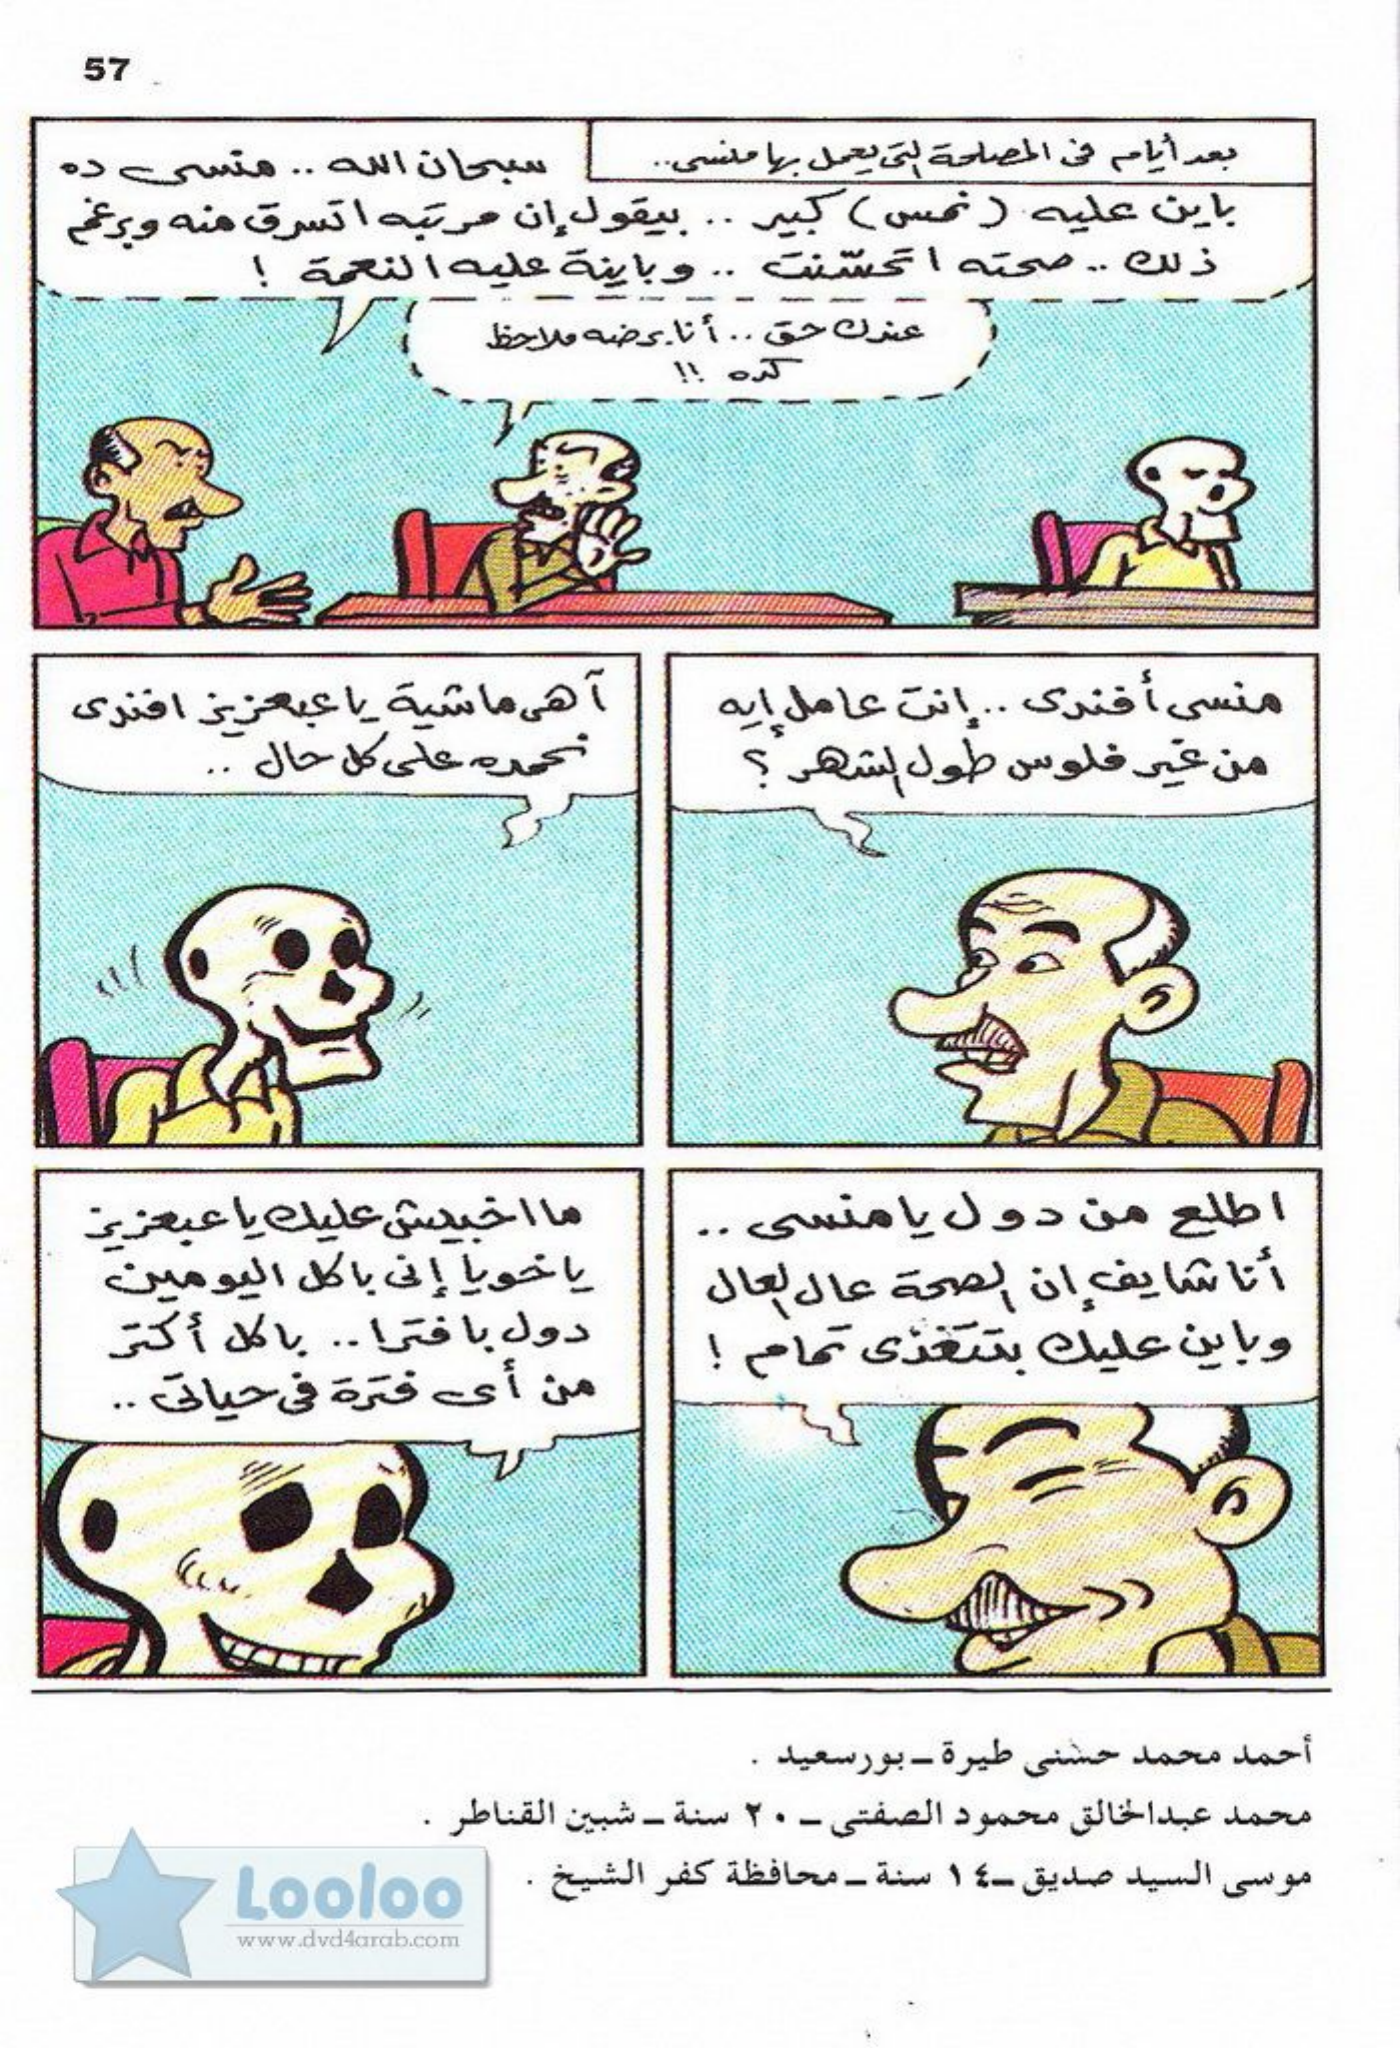 57
بعد أيام فى المصلحة التى يعمل بها منسى..
سبحان الله .. منسى ده
باين عليه (نمس) كبير .. بيقول إن مرتبه اتسرق منه وبرغم
ذلك .. صحته اتحسّنت .. وباينة عليه النعمة !
عندك حق .. أنا برضه ملاحظ
كده !!
منسى أفندى .. إنت عامل إيه
من غير فلوس طول الشهر ؟
آهى ماشية يا عبعزيز افندى
نحمده على كل حال ..
اطلع من دول يا منسى ..
أنا شايف إن الصحة عال العال
وباين عليك بتتغذى تمام !
ما اخبيش عليك يا عبعزيز
يا خويا إنى باكل اليومين
دول بافترا .. باكل أكتر
من أى فترة فى حياتى ..
أحمد محمد حسنى طيرة ــ بورسعيد .
محمد عبدالخالق محمود الصفتى ــ ٢٠ سنة ــ شبين القناطر .
موسى السيد صديق ــ ١٤ سنة ــ محافظة كفر الشيخ .
Looloo
www.dvd4arab.com